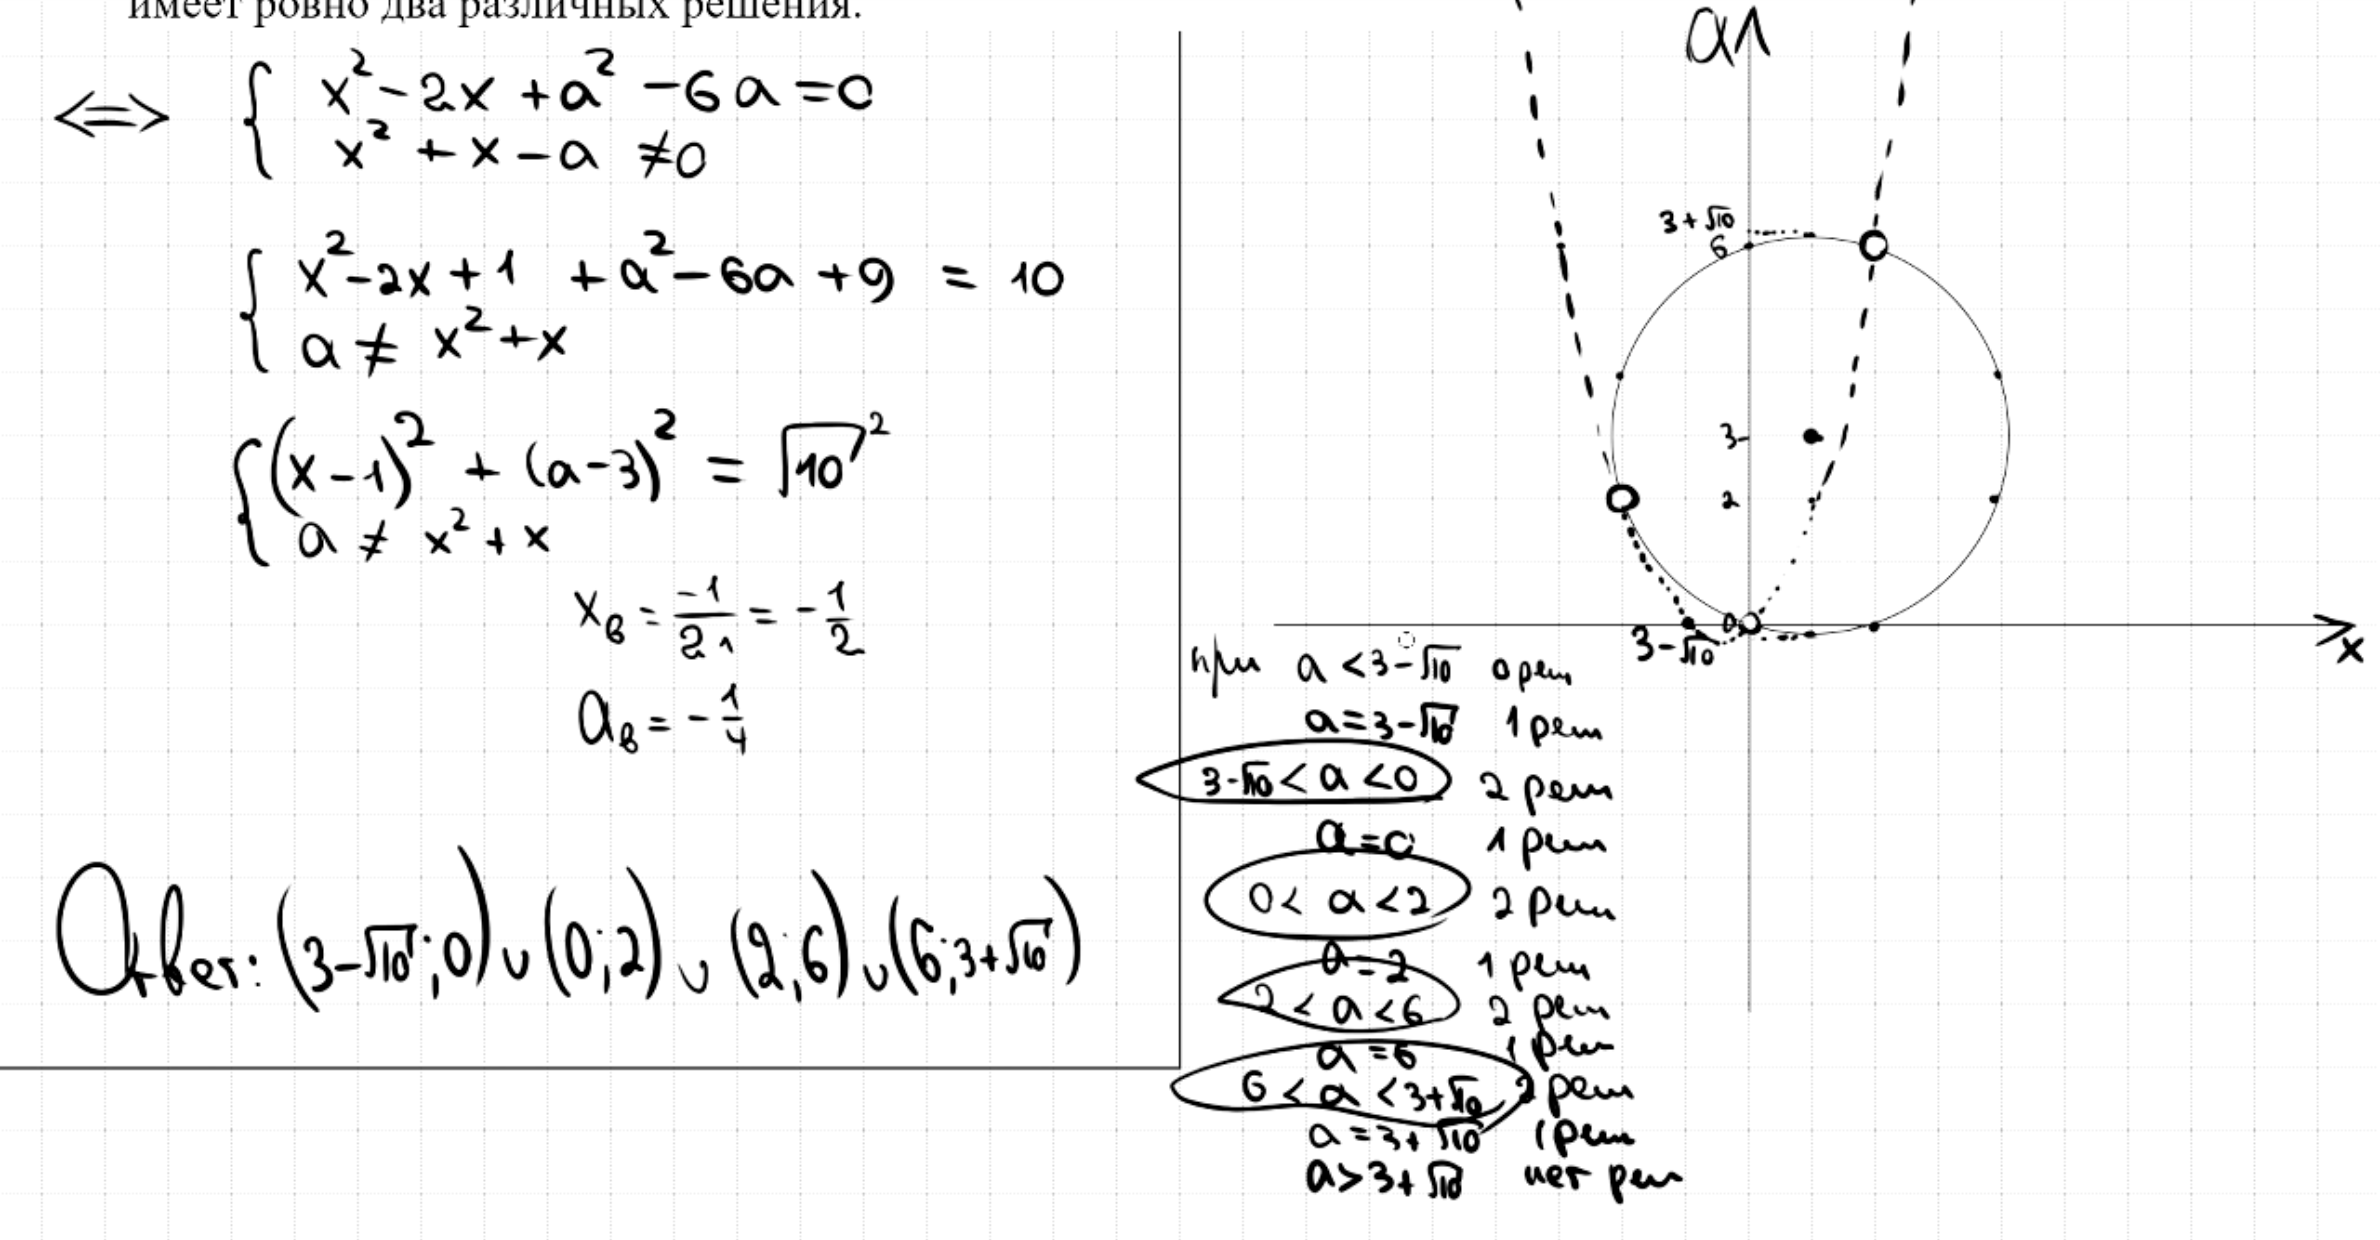 имеет ровно два различных решения.
⟺ { x² - 2x + a² - 6a = 0
x² + x - a ≠ 0
{ x² - 2x + 1 + a² - 6a + 9 = 10
a ≠ x² + x
{ (x-1)² + (a-3)² = √10²
a ≠ x² + x
xв = -1/2·1 = -1/2
aв = -1/4
Ответ: (3-√10; 0) ∪ (0; 2) ∪ (2; 6) ∪ (6; 3+√10)
a
3+√10
6
3
2
0
3-√10
x
при a < 3-√10 0 реш
a = 3-√10 1 реш
3-√10 < a < 0 2 реш
a = 0 1 реш
0 < a < 2 2 реш
a = 2 1 реш
2 < a < 6 2 реш
a = 6 1 реш
6 < a < 3+√10 2 реш
a = 3+√10 1 реш
a > 3+√10 нет реш